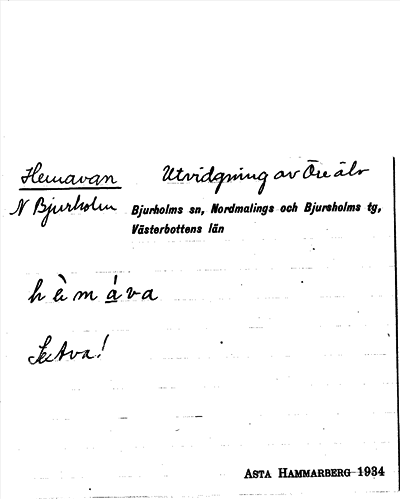 Hemavan Utvidgning av Öre älv
N Bjurholm Bjurholms sn, Nordmalings och Bjurholms tg,
Västerbottens län
hèmáva
Se Ava!
ASTA HAMMARBERG 1934